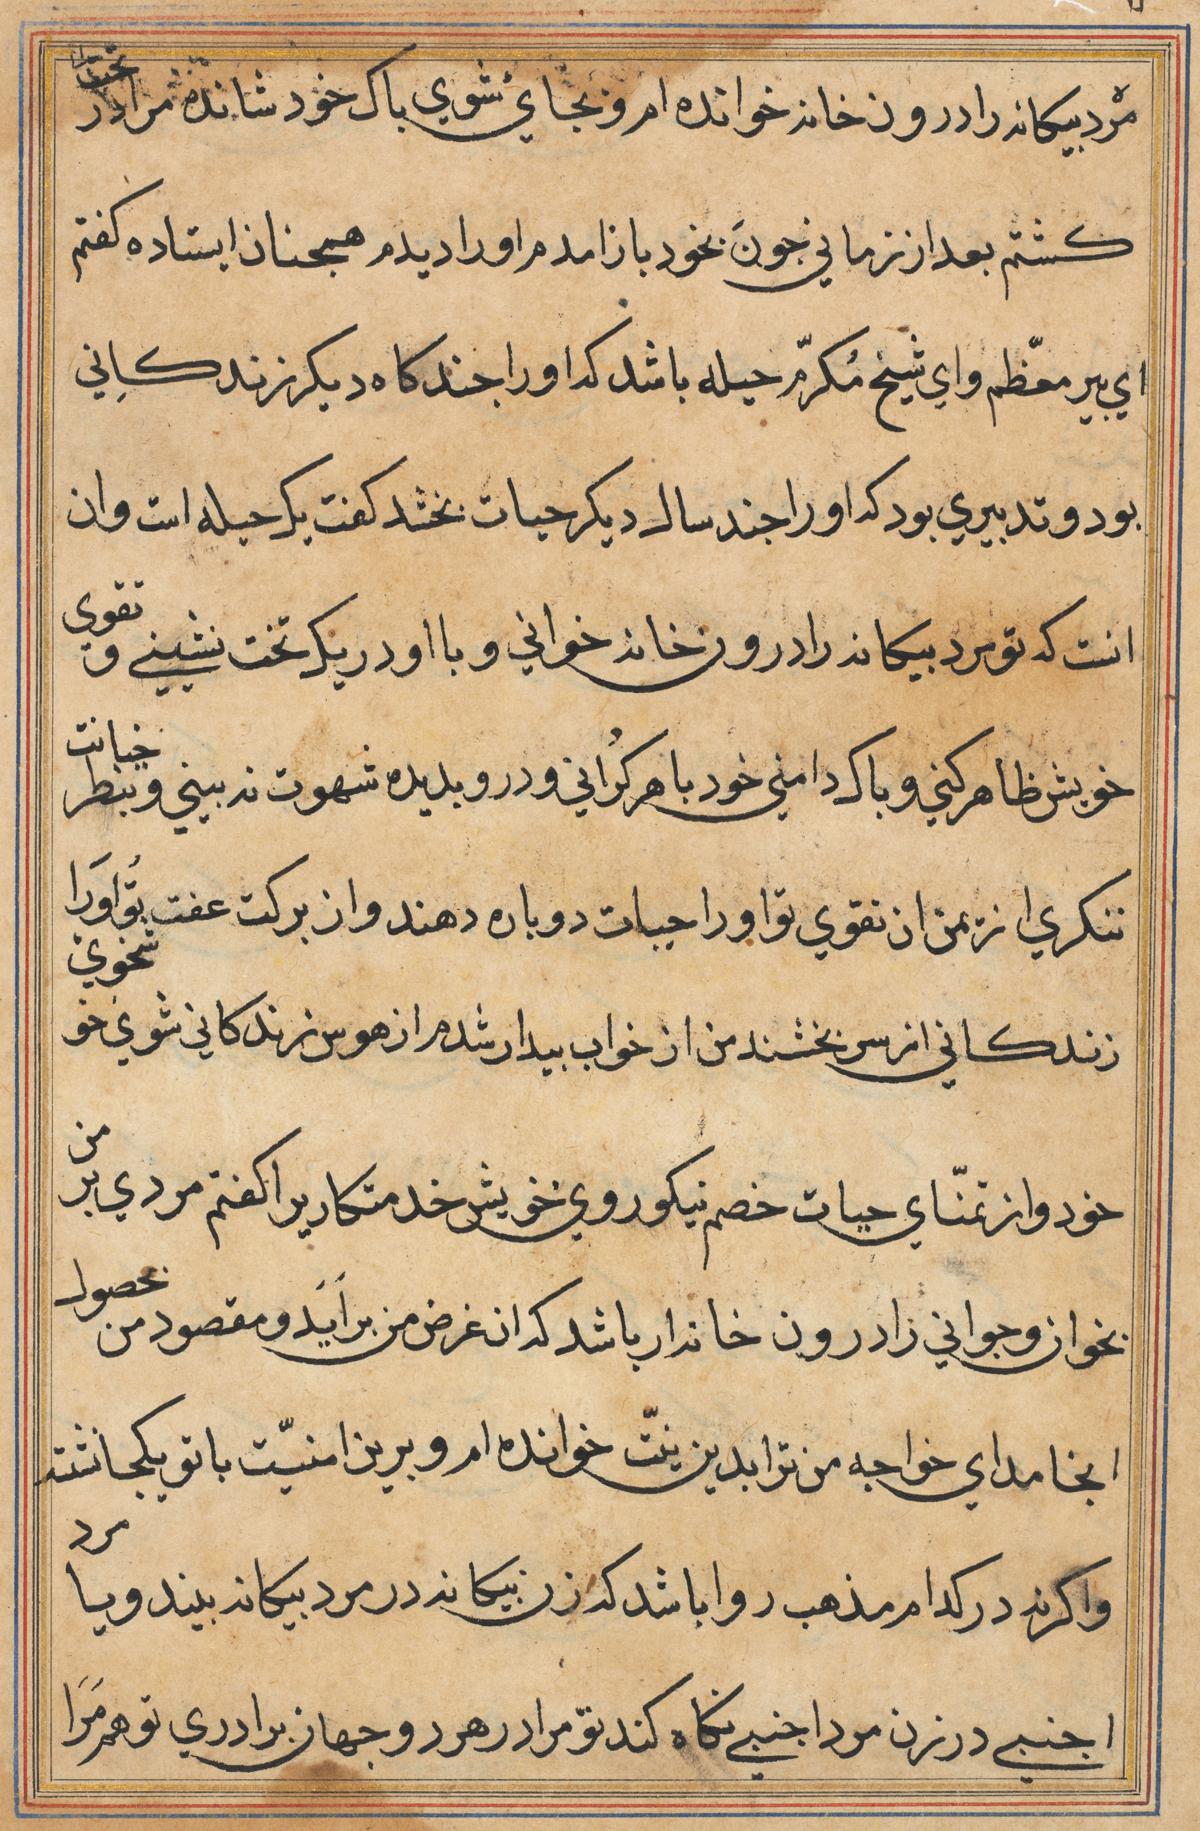 مرد بیکانه را درون خانه خوانده ام و بجای شوی باک خود شانده مرا در تحت
کشتم بعد از زمانی جون بخود باز امدم او را دیدم همجنان ایستاده کفتم
ای بیر معظّم و ای شیخ مُکرّم حیله باشد که او را جند کاه دیکر زندکانی
بود و تدبیری بود که او را جند سال دیکر حیات بخشد کفت یک حیله است و ان
انست که تو مرد بیکانه را درون خانه خوانی و با او در یک تخت نشینی و تقوی
خویش ظاهر کنی و باک دامنی خود باهر کرانی و در و بدیده شهوت نه بینی و بنظر خیانت
ننکری از یمن ان تقوی تو او را حیات دوباره دهند و از برکت عفت تو او را
زندکانی از سر بخشند من از خواب بیدار شدم از هوس زندکانی شوی خو شخوی
خود و از تمنّای حیات خصم نیکو روی خویش خدمتکاریرا کفتم مردی بر من
بخوان و جوانی را درون خانه ار باشد که ان غرض من بر اَیَد و مقصود من بحصول
انجامد ای خواجه من ترا بدین نیّت خوانده ام و برین امنیّت با تو یکجا نشته
و اکر نه در کدام مذهب روا باشد که زن بیکانه در مرد بیکانه بیند و یا مرد
اجنبی در زن مرد اجنبی نکاه کند تو مرا در هر دو جهان برادری تو هم مَرَا